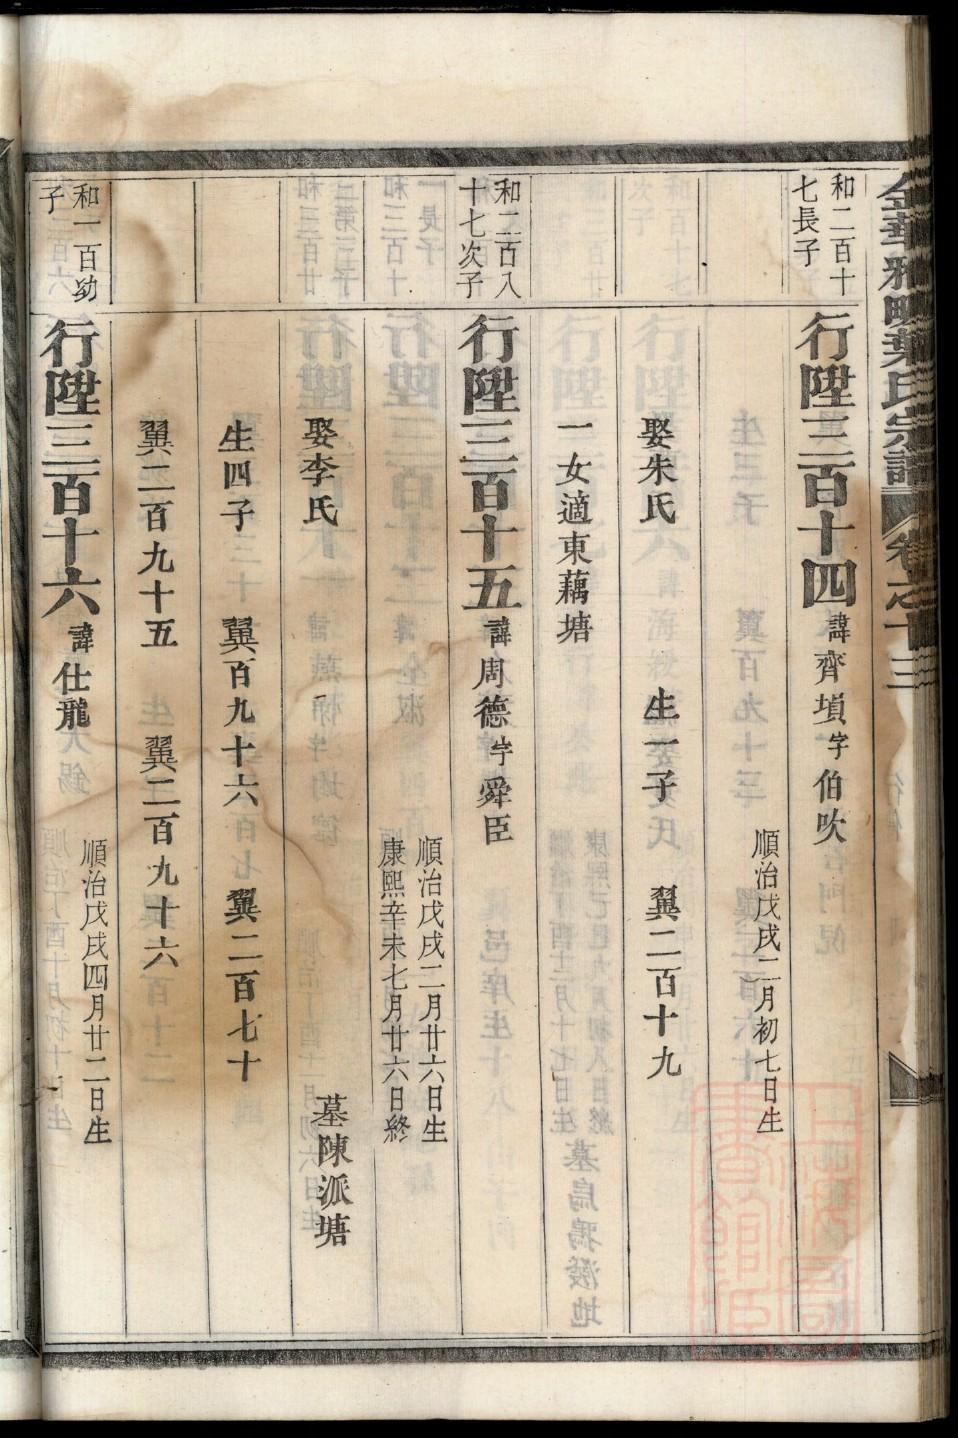 金華雅畈葉氏宗譜 卷之十三
和二百十
七長子
行陞三百十四 諱齊塤 字伯吹
順治戊戌二月初七日生
娶朱氏 生一子 翼二百十九
一女適東藕塘
和二百八
十七次子
行陞三百十五 諱周德 字舜臣
順治戊戌二月廿六日生
康熙辛未七月廿六日終
墓陳派塘
娶李氏
生四子 翼百九十六 翼二百七十
翼二百九十五 翼二百九十六
和一百幼
子
行陞三百十六 諱仕龍
順治戊戌四月廿二日生